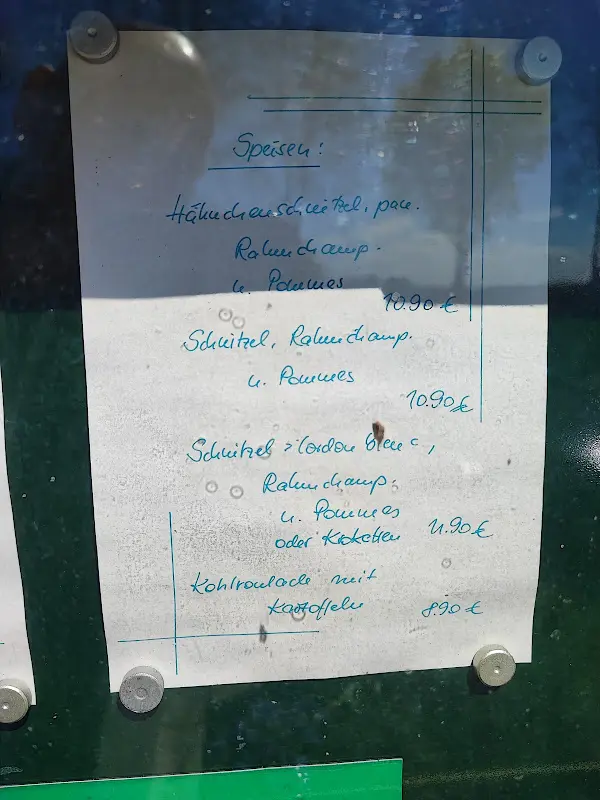 Speisen:
Hähnchenschnitzel, pan.
Rahmchamp.
u. Pommes
10.90 €
Schnitzel, Rahmchamp.
u. Pommes
10.90 €
Schnitzel >Cordon bleu<,
Rahmchamp.
u. Pommes
oder Kroketten 11.90 €
Kohlroulade mit
Kartoffeln 8.90 €